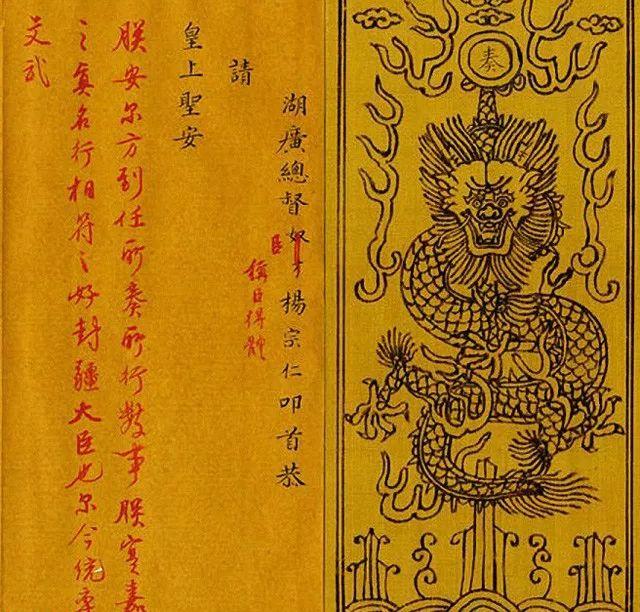 奏
湖廣總督奴才楊宗仁叩首恭
臣
稱臣得體
請
皇上聖安
朕安尔方到任所奏所行數事朕實嘉
之真名行相符之好封疆大臣也尔今統率
文武